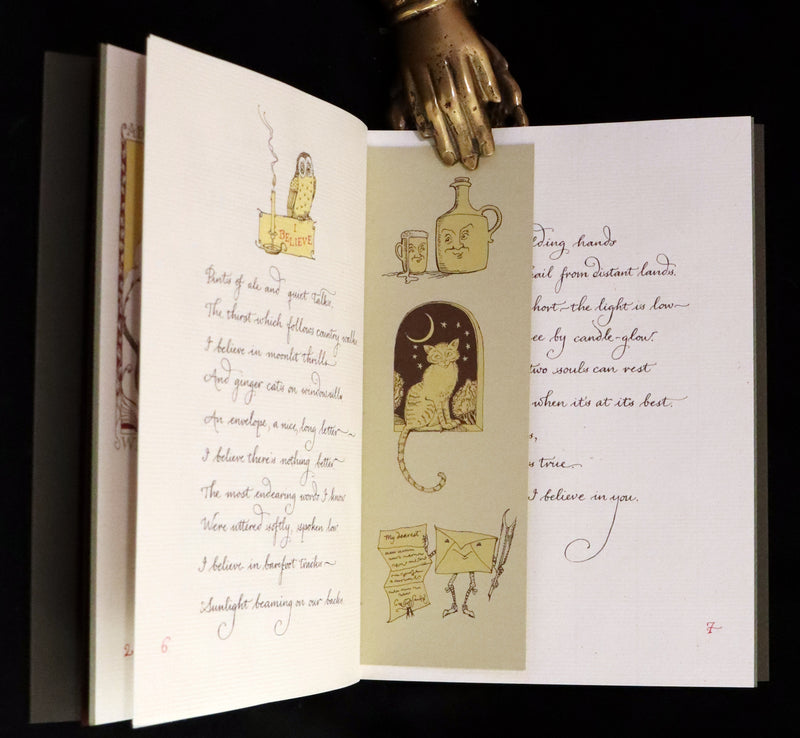 I
BELIEVE
Pints of ale and quiet talks,
The thirst which follows country walks
I believe in moonlit thrills
And ginger cats on windowsills
An envelope, a nice, long letter
I believe there's nothing better
The most endearing words I know
Were uttered softly, spoken low
I believe in barefoot tracks
Sunlight beaming on our backs.
2
6
My dearest
lding hands
ail from distant lands.
hort the light is low
ee by candle-glow.
two souls can rest
when it's at it's best.
s,
s true
I believe in you.
7